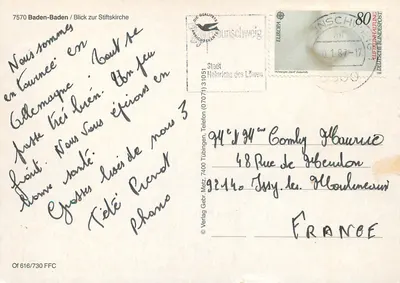 7570 Baden-Baden / Blick zur Stiftskirche
Nous sommes
en tournée en
Allemagne. Tout se
passe très bien. Un peu
froid. Nous vous espérons en
bonne santé.
Grosses bises de nous 3
Pierrot
© Verlag Gebr. Metz, 7400 Tübingen, Telefon (07071) 31051
Of 616/730 FFC
Braunschweig
Stadt
Heinrichs des Löwen
EUROPA
80
DEUTSCHE BUNDESPOST
Mr et Mme Comby Maurice
48 Rue de Meudon
92140 Issy les Moulineaux
FRANCE